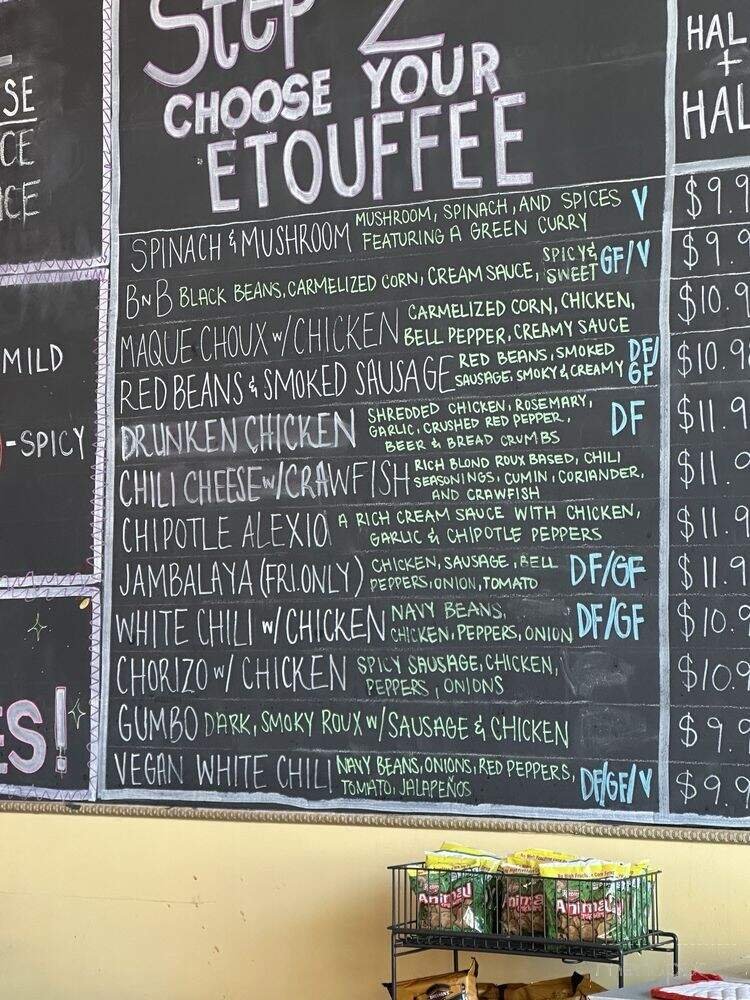 Step 2
CHOOSE YOUR
ETOUFFEE
SPINACH & MUSHROOM MUSHROOM, SPINACH, AND SPICES FEATURING A GREEN CURRY V
BNB BLACK BEANS, CARMELIZED CORN, CREAM SAUCE, SPICY & SWEET GF/V
MAQUE CHOUX w/CHICKEN CARMELIZED CORN, CHICKEN, BELL PEPPER, CREAMY SAUCE
RED BEANS & SMOKED SAUSAGE RED BEANS, SMOKED SAUSAGE, SMOKY & CREAMY DF/GF
DRUNKEN CHICKEN SHREDDED CHICKEN, ROSEMARY, GARLIC, CRUSHED RED PEPPER, BEER & BREAD CRUMBS DF
CHILI CHEESE w/CRAWFISH RICH BLOND ROUX BASED, CHILI SEASONINGS, CUMIN, CORIANDER, AND CRAWFISH
CHIPOTLE ALEXIO A RICH CREAM SAUCE WITH CHICKEN, GARLIC & CHIPOTLE PEPPERS
JAMBALAYA (FRI. ONLY) CHICKEN, SAUSAGE, BELL PEPPERS, ONION, TOMATO DF/GF
WHITE CHILI w/CHICKEN NAVY BEANS, CHICKEN, PEPPERS, ONION DF/GF
CHORIZO w/ CHICKEN SPICY SAUSAGE, CHICKEN, PEPPERS, ONIONS
GUMBO DARK, SMOKY ROUX w/SAUSAGE & CHICKEN
VEGAN WHITE CHILI NAVY BEANS, ONIONS, RED PEPPERS, TOMATO, JALAPEÑOS DF/GF/V
HAL
+
HAL
$9.9
$9.9
$10.9
$10.98
$11.9
$11.9
$11.9
$11.9
$10.9
$10.9
$9.9
$9.9
SE
CE
ICE
MILD
-SPICY
ES!
Animal
Anima
Animal